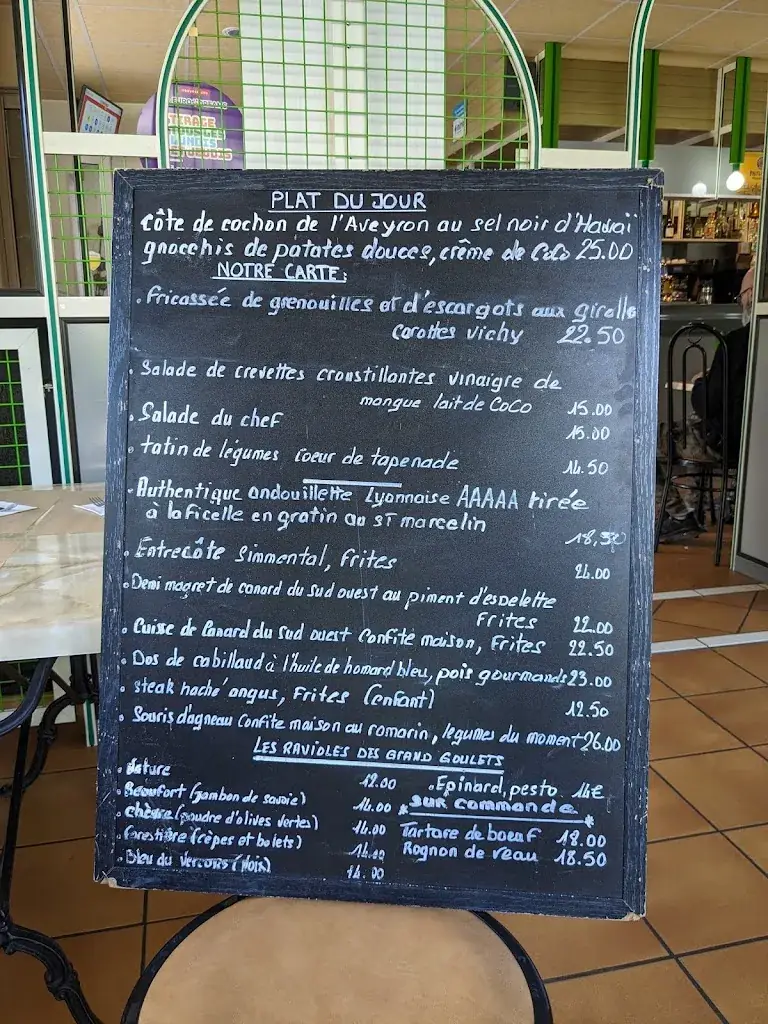 TIRAGE
TOUS LES
PLAT DU JOUR
côte de cochon de l'Aveyron au sel noir d'Hawaï
gnocchis de patates douces, crème de CoCo 25.00
NOTRE CARTE:
. Fricassée de grenouilles et d'escargots aux girolle
carottes vichy 22.50
. Salade de crevettes croustillantes vinaigre de
mangue lait de CoCo 15.00
. Salade du chef 15.00
. tatin de légumes coeur de tapenade 14.50
. Authentique andouillette Lyonnaise AAAAA tirée
à la ficelle en gratin au ST marcelin 18.50
. Entrecôte Simmental, frites 24.00
. Demi magret de canard du sud ouest au piment d'espelette
Frites 22.00
. Cuisse de Canard du Sud Ouest Confite maison, Frites 22.50
. Dos de cabillaud à l'huile de homard bleu, pois gourmands 23.00
. steak haché angus, Frites (enfant) 12.50
. Souris d'agneau Confite maison au romarin, légumes du moment 26.00
LES RAVIOLES DES GRAND GOULETS
. Nature 12.00
. Beaufort (jambon de savoie) 14.00
. chèvre (poudre d'olives vertes) 14.00
. forestière (cèpes et bolets) 14.00
. Bleu du Vercors (Noix) 14.00
. Epinard, pesto 14€
* SUR COMMANDE *
Tartare de boeuf 18.00
Rognon de veau 18.50